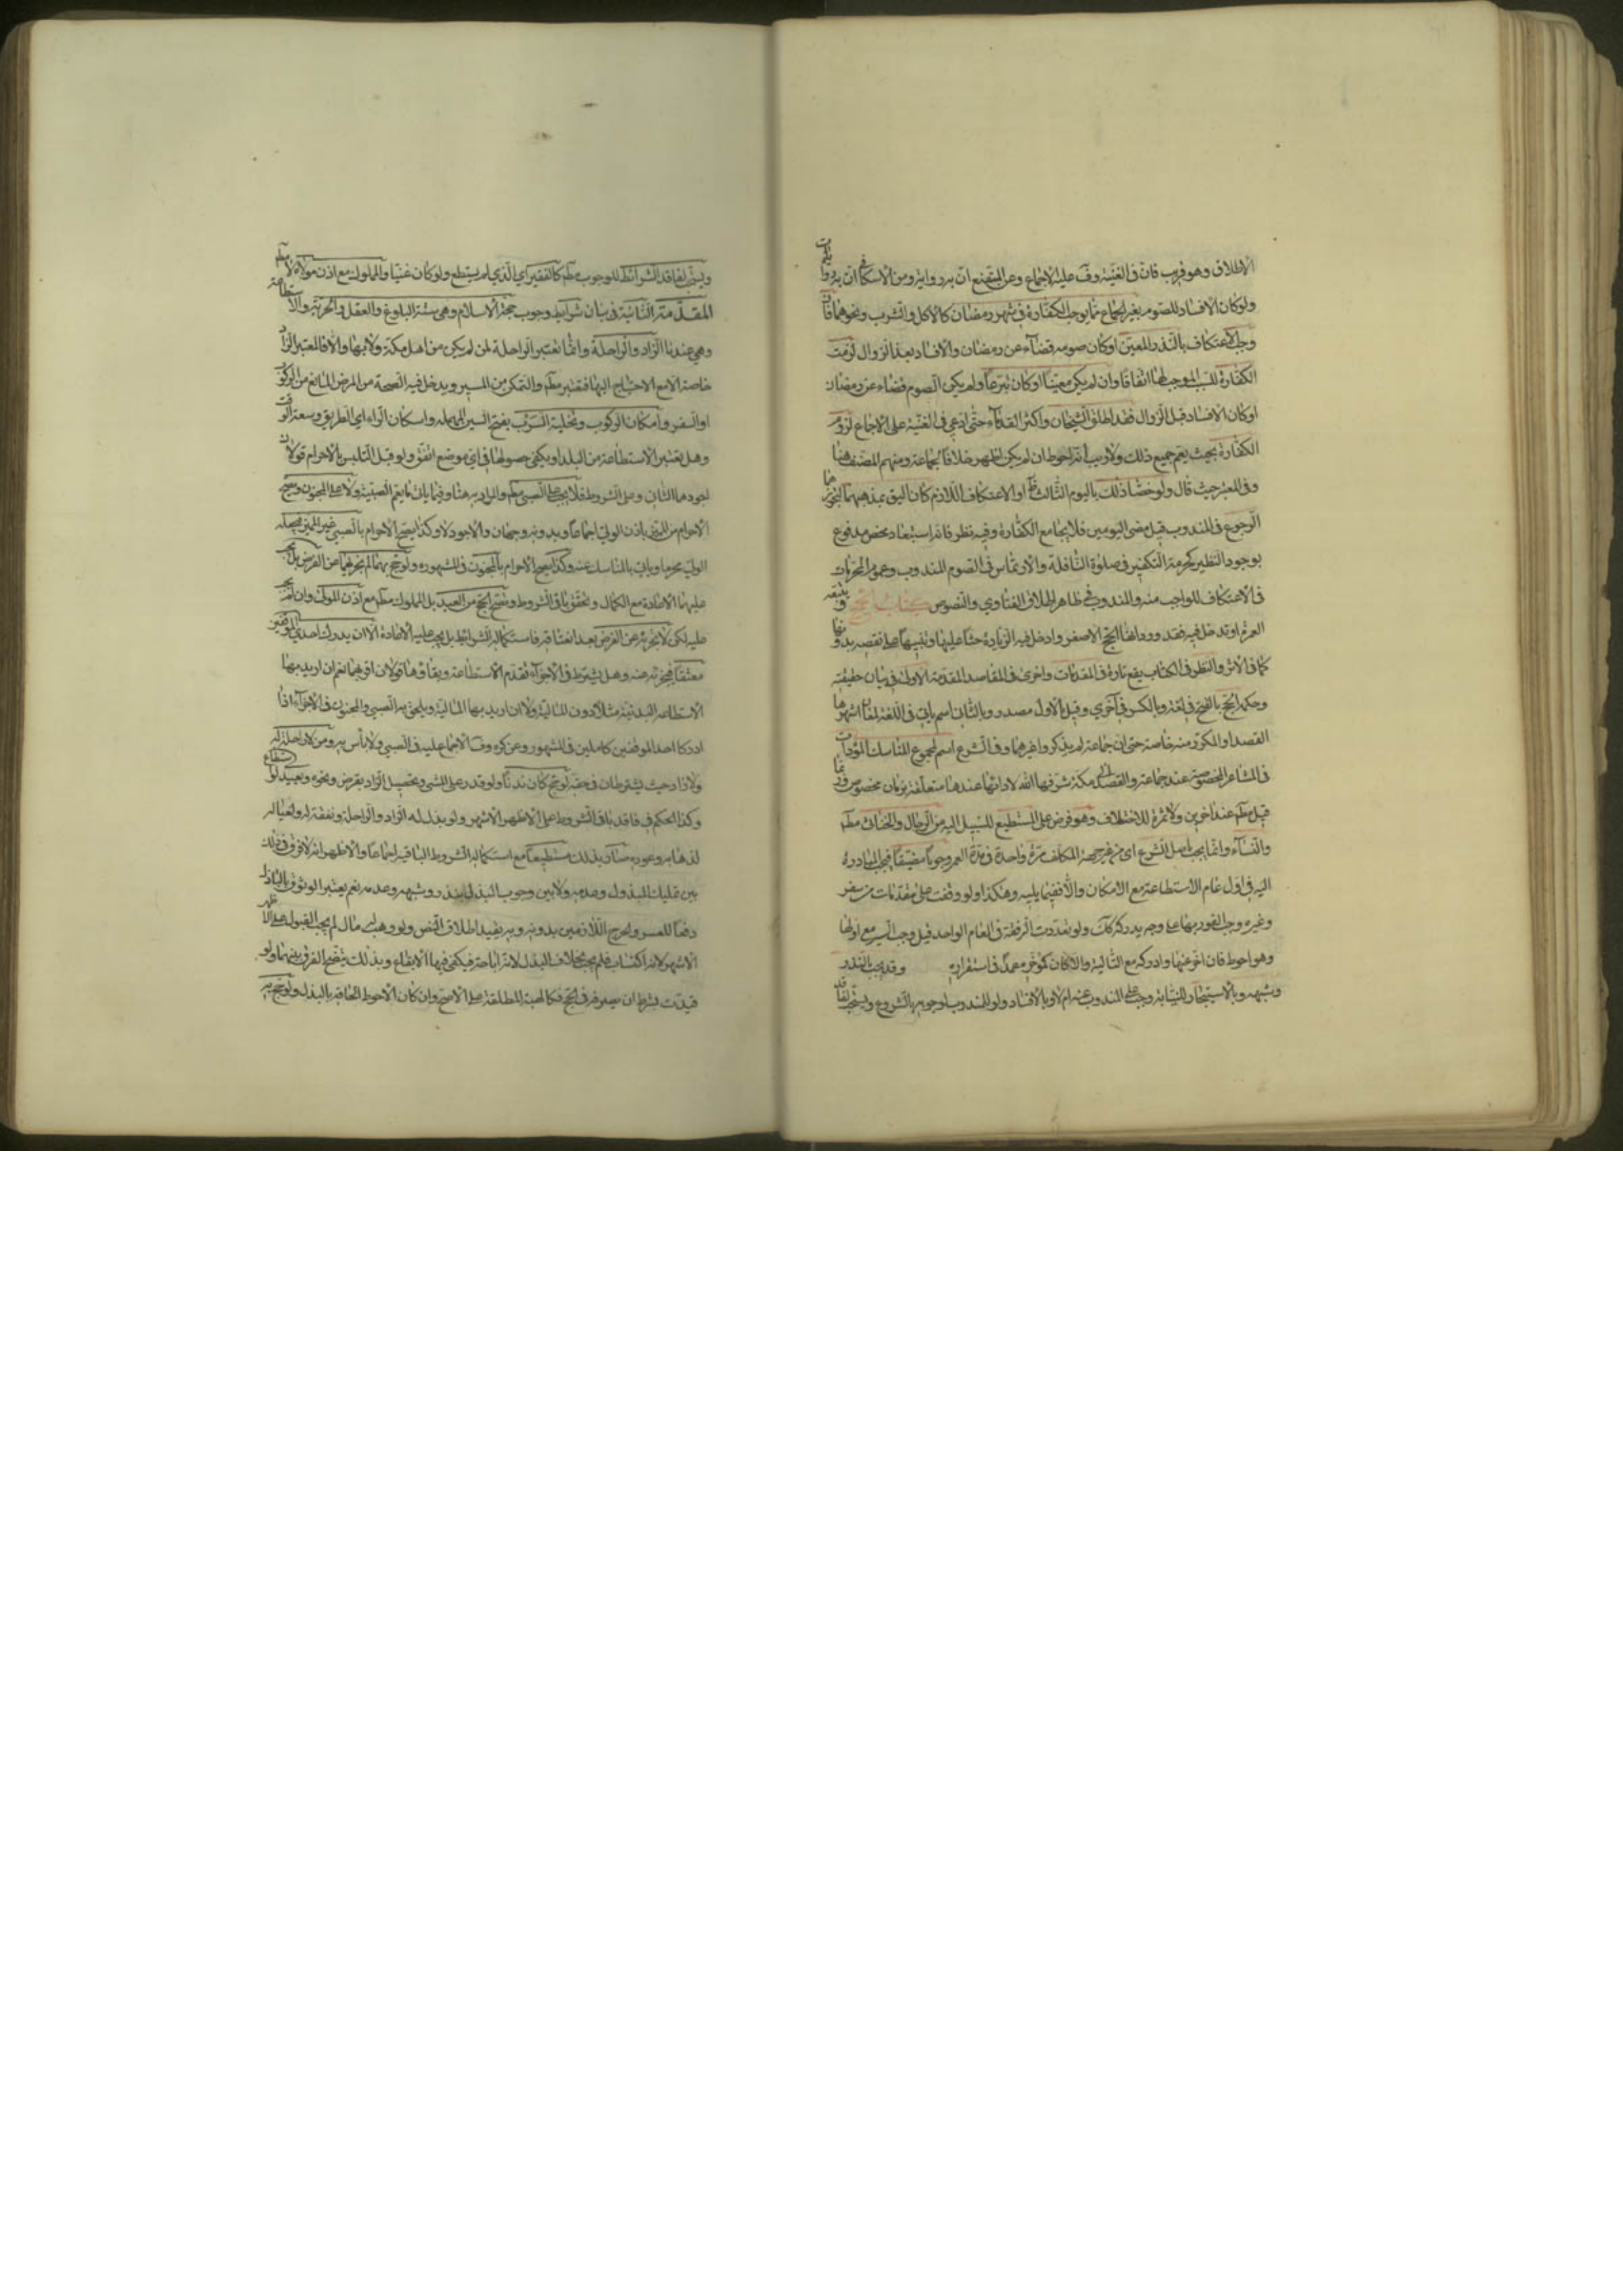 الاطلاق وهو قريب فان في الغنية وفّ عليه الاجماع وعن المقنع ان به رواية ومن الاسكافي ان به روايات
ولو كان الافساد للصوم بغير الجماع مما يوجب الكفارة في شهر رمضان كالاكل والشرب ونحوهما فان
وجب الاعتكاف بالنذر المعين او كان صومه قضاء عن رمضان والافساد بعد الزوال لزمت
الكفارة للسبب الموجب لها اتفاقا وان لم يكن معينا او كان تبرعا ولم يكن الصوم قضاء عن رمضان
او كان الافساد قبل الزوال فقد اطلق الشيخان واكثر القدماء حتى ادعي في الغنية على الاجماع لزوم
الكفارة بحيث يعم جميع ذلك ولا ريب انه احوط ان لم يكن اظهر خلافا لجماعة ومنهم المصنف هنا
وفي المعتبر حيث قال ولو خصّا ذلك باليوم الثالث او الاعتكاف اللازم كان اليق بمذهبهما لتجويزهما
الرجوع في المندوب قبل مضي اليومين فلا يجامع الكفارة وفيه نظر فانه استبعاد محض مدفوع
بوجود النظير كحرمة التكفير في صلوة النافلة والارتماس في الصوم المندوب وعموم المحرمات
في الاعتكاف للواجب منه والمندوب في ظاهر اطلاق الفتاوي والنصوص كتاب الحج
العمرة او تدخل فيه فقد ورد انها الحج الاصغر وادخل فيه الزيارة حثا عليها وتنبيها على نقصه بدونها
كما في الاثر والنظر في الكتاب يقع تارة في المقدمات واخرى في المقاصد المقدمة الاولى في بيان حقيقته
وحكمه الحج بالفتح في لغة وبالكسر في اخري وقيل الاول مصدر وبالثاني اسم ياتي في اللغة لمعان اشهرها
القصد او المكرر منه خاصة حتى ان جماعة لم يذكروا غيرهما وفي الشرع اسم لمجموع المناسك المؤدات
في المشاعر المخصوصة عند جماعة والقصد الى مكة شرفها الله لادائها عندها متعلقة بزمان مخصوص
قبل عند اخرين ولا ثمرة للاختلاف وهو فرض على المستطيع للسبيل اليه من الرجال والخناثى مطم
والنساء وانما يجب باصل الشرع اي من غير جهة المكلف مرة واحدة في مدة العمر وجوبا مضيقا فيجب المبادرة
اليه في اول عام الاستطاعة مع الامكان والا ففيما يليه وهكذا ولو وقفت على مقدمات من سفر
وغيره وجب الفور بها على وجه يدركه كك ولو تعددت الرفقة في العام الواحد قيل وجب السير مع اولها
وهو احوط فان اخر عنها وادركه مع التالية والا كان كمؤخره عمدا في استقراره وقد يجب بالنذر
وشبهه وبالاستيجار للنيابة وجب على المندوب عنه ام لا وبالافساد ولو للمندوب لوجوبه بالشروع ويستحب لفاقد
ويستحب لفاقد الشرائط للوجوب مطم كالفقير اي الذي لم يستطع ولو كان غنيا والمملوك مع اذن مولاه لا مطم
المقدمة الثانية في بيان شرايط وجوب حجة الاسلام وهي ستة البلوغ والعقل والحرية والاستطاعة
وهي عندنا الزاد والراحلة وانما تعتبر الراحلة لمن لم يكن من اهل مكة ولا بها والا فالمعتبر الزاد
خاصة الا مع الاحتياج اليها فتعتبر مطم والتمكن من المسير ويدخل فيه الصحة من المرض المانع من الركوب
او السفر وامكان الركوب وتخلية السرب بفتح السين المهملة واسكان الراء اي الطريق وسعة الوقت
وهل تعتبر الاستطاعة من البلد او يكفي حصولها في اي موضع اتفق ولو قبل التلبس بالاحرام قولان
اجودهما الثاني وعلى الشروط فلا يجب على الصبي مطم والمراد به هنا وفيما ياتي ما يعم الصبية ولا على المجنون ويصح
الاحرام من المميز باذن الولي اجماعا وبدونه وجهان والاجود لا وكذا يصح الاحرام بالصبي غير المميز فيجعله
الولي محرما وياتي بالمناسك عنه وكذا يصح الاحرام بالمجنون في المشهور ولو حج بهما لم يجزئهما عن الفرض بل يجب
عليهما الاعادة مع الكمال وتحقق باقي الشروط ويصح الحج من العبد بل المملوك مطم مع اذن المولى وان لم يجب
عليه لكن لا يجزئه عن الفرض بعد انعتاقه فاستكماله الشرائط بل يجب عليه الاعادة الا ان يدرك احدي الموقفين
معتقا فيجزئه عنه وهل يشترط في الاجزاء تقدم الاستطاعة وبقاؤها قولان اقربهما نعم ان اريد بها
الاستطاعة البدنية مثلا دون المالية ولا ان اريد بها المالية ويلحق به الصبي والمجنون في الاجزاء اذا
ادركا احد الموقفين كاملين في المشهور وعن كره وف الاجماع عليه في الصبي ولا باس به ومن لا راحلة له
ولا زاد حيث يشترطان في حقه لو حج كان ندبا ولو قدر على المشي وتحصيل الزاد بقرض ونحوه ويعيد لو استطاع
وكذا الحكم في فاقد باقي الشروط على الاظهر الاشهر ولو بذل له الزاد والراحلة ونفقة له ولعياله
لذهابه وعوده صار بذلك مستطيعا مع استكماله الشروط الباقية اجماعا والاظهر انه لا فرق في ذلك
بين تمليك المبذول وعدمه ولا بين وجوب البذل بنذر وشبهه وعدمه نعم يعتبر الوثوق بالباذل
دفعا للعسر والحرج اللازمين بدونه وبه يقيد اطلاق النص ولو وهب له مال لم يجب القبول على الاظهر
الاشهر لانه اكتساب فلم يجب بخلاف البذل لانه اباحة فيكفي فيها الايقاع وبذلك يتضح الفرق بينهما ولو
قيدت بشرط ان يصرفه في الحج فكالهبة المطلقة على الاصح وان كان الاحوط الحاقه بالبذل ولو حج به